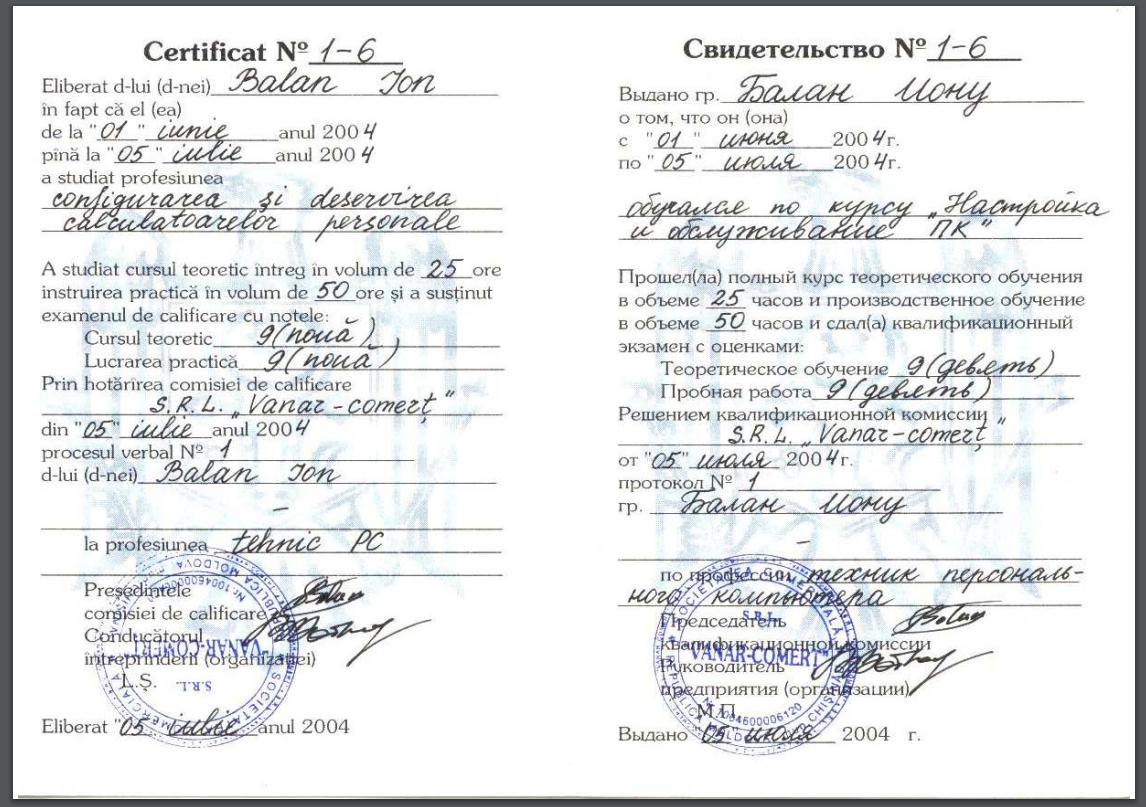 Certificat Nº 1-6
Eliberat d-lui (d-nei) Balan Ion
în fapt că el (ea)
de la "01" iunie anul 2004
pînă la "05" iulie anul 2004
a studiat profesiunea
configurarea şi deservirea
calculatoarelor personale
A studiat cursul teoretic întreg în volum de 25 ore
instruirea practică în volum de 50 ore şi a susţinut
examenul de calificare cu notele:
Cursul teoretic 9 (nouă)
Lucrarea practică 9 (nouă)
Prin hotărîrea comisiei de calificare
S.R.L. „Vanar-comerţ"
din "05" iulie anul 2004
procesul verbal Nº 1
d-lui (d-nei) Balan Ion
–
la profesiunea tehnic PC
Preşedintele
comisiei de calificare
Conducătorul
întreprinderii (organizaţiei)
L.Ş.
Eliberat "05 iulie anul 2004
"VANAR-COMERT"
S.R.L.
REPUBLICA MOLDOVA
SOCIETATEA COMERCIALĂ
Свидетельство Nº 1-6
Выдано гр. Балан Иону
о том, что он (она)
с "01" июня 2004г.
по "05" июля 2004г.
обучался по курсу „Настройка
и обслуживание ПК"
Прошел(ла) полный курс теоретического обучения
в объеме 25 часов и производственное обучение
в объеме 50 часов и сдал(а) квалификационный
экзамен с оценками:
Теоретическое обучение 9 (девять)
Пробная работа 9 (девять)
Решением квалификационной комиссии
S.R.L. „Vanar-comerţ"
от "05" июля 2004г.
протокол Nº 1
гр. Балан Иону
–
по профессии техник персональ-
ного компьютера
Председатель
квалификационной комиссии
Руководитель
предприятия (организации)
М.П.
Выдано "05" июля 2004 г.
SOCIETATEA COMERCIALĂ
S.R.L.
"VANAR-COMERT"
Nr. 1004600006120
REPUBLICA MOLDOVA
CHIŞINĂU